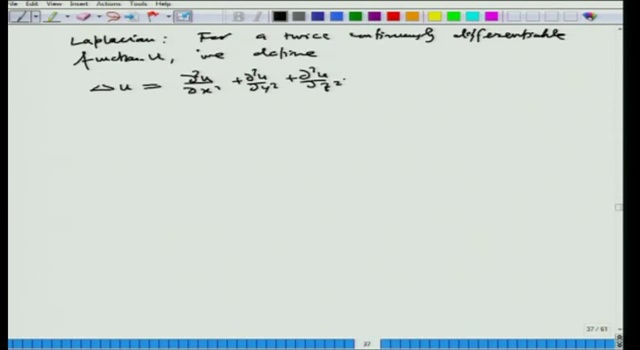 View Insert Actions Tools Help
Laplacian: For a twice continuously differentiable
function u, we define
Δu = ∂²u/∂x² + ∂²u/∂y² + ∂²u/∂z².
37 / 61
37